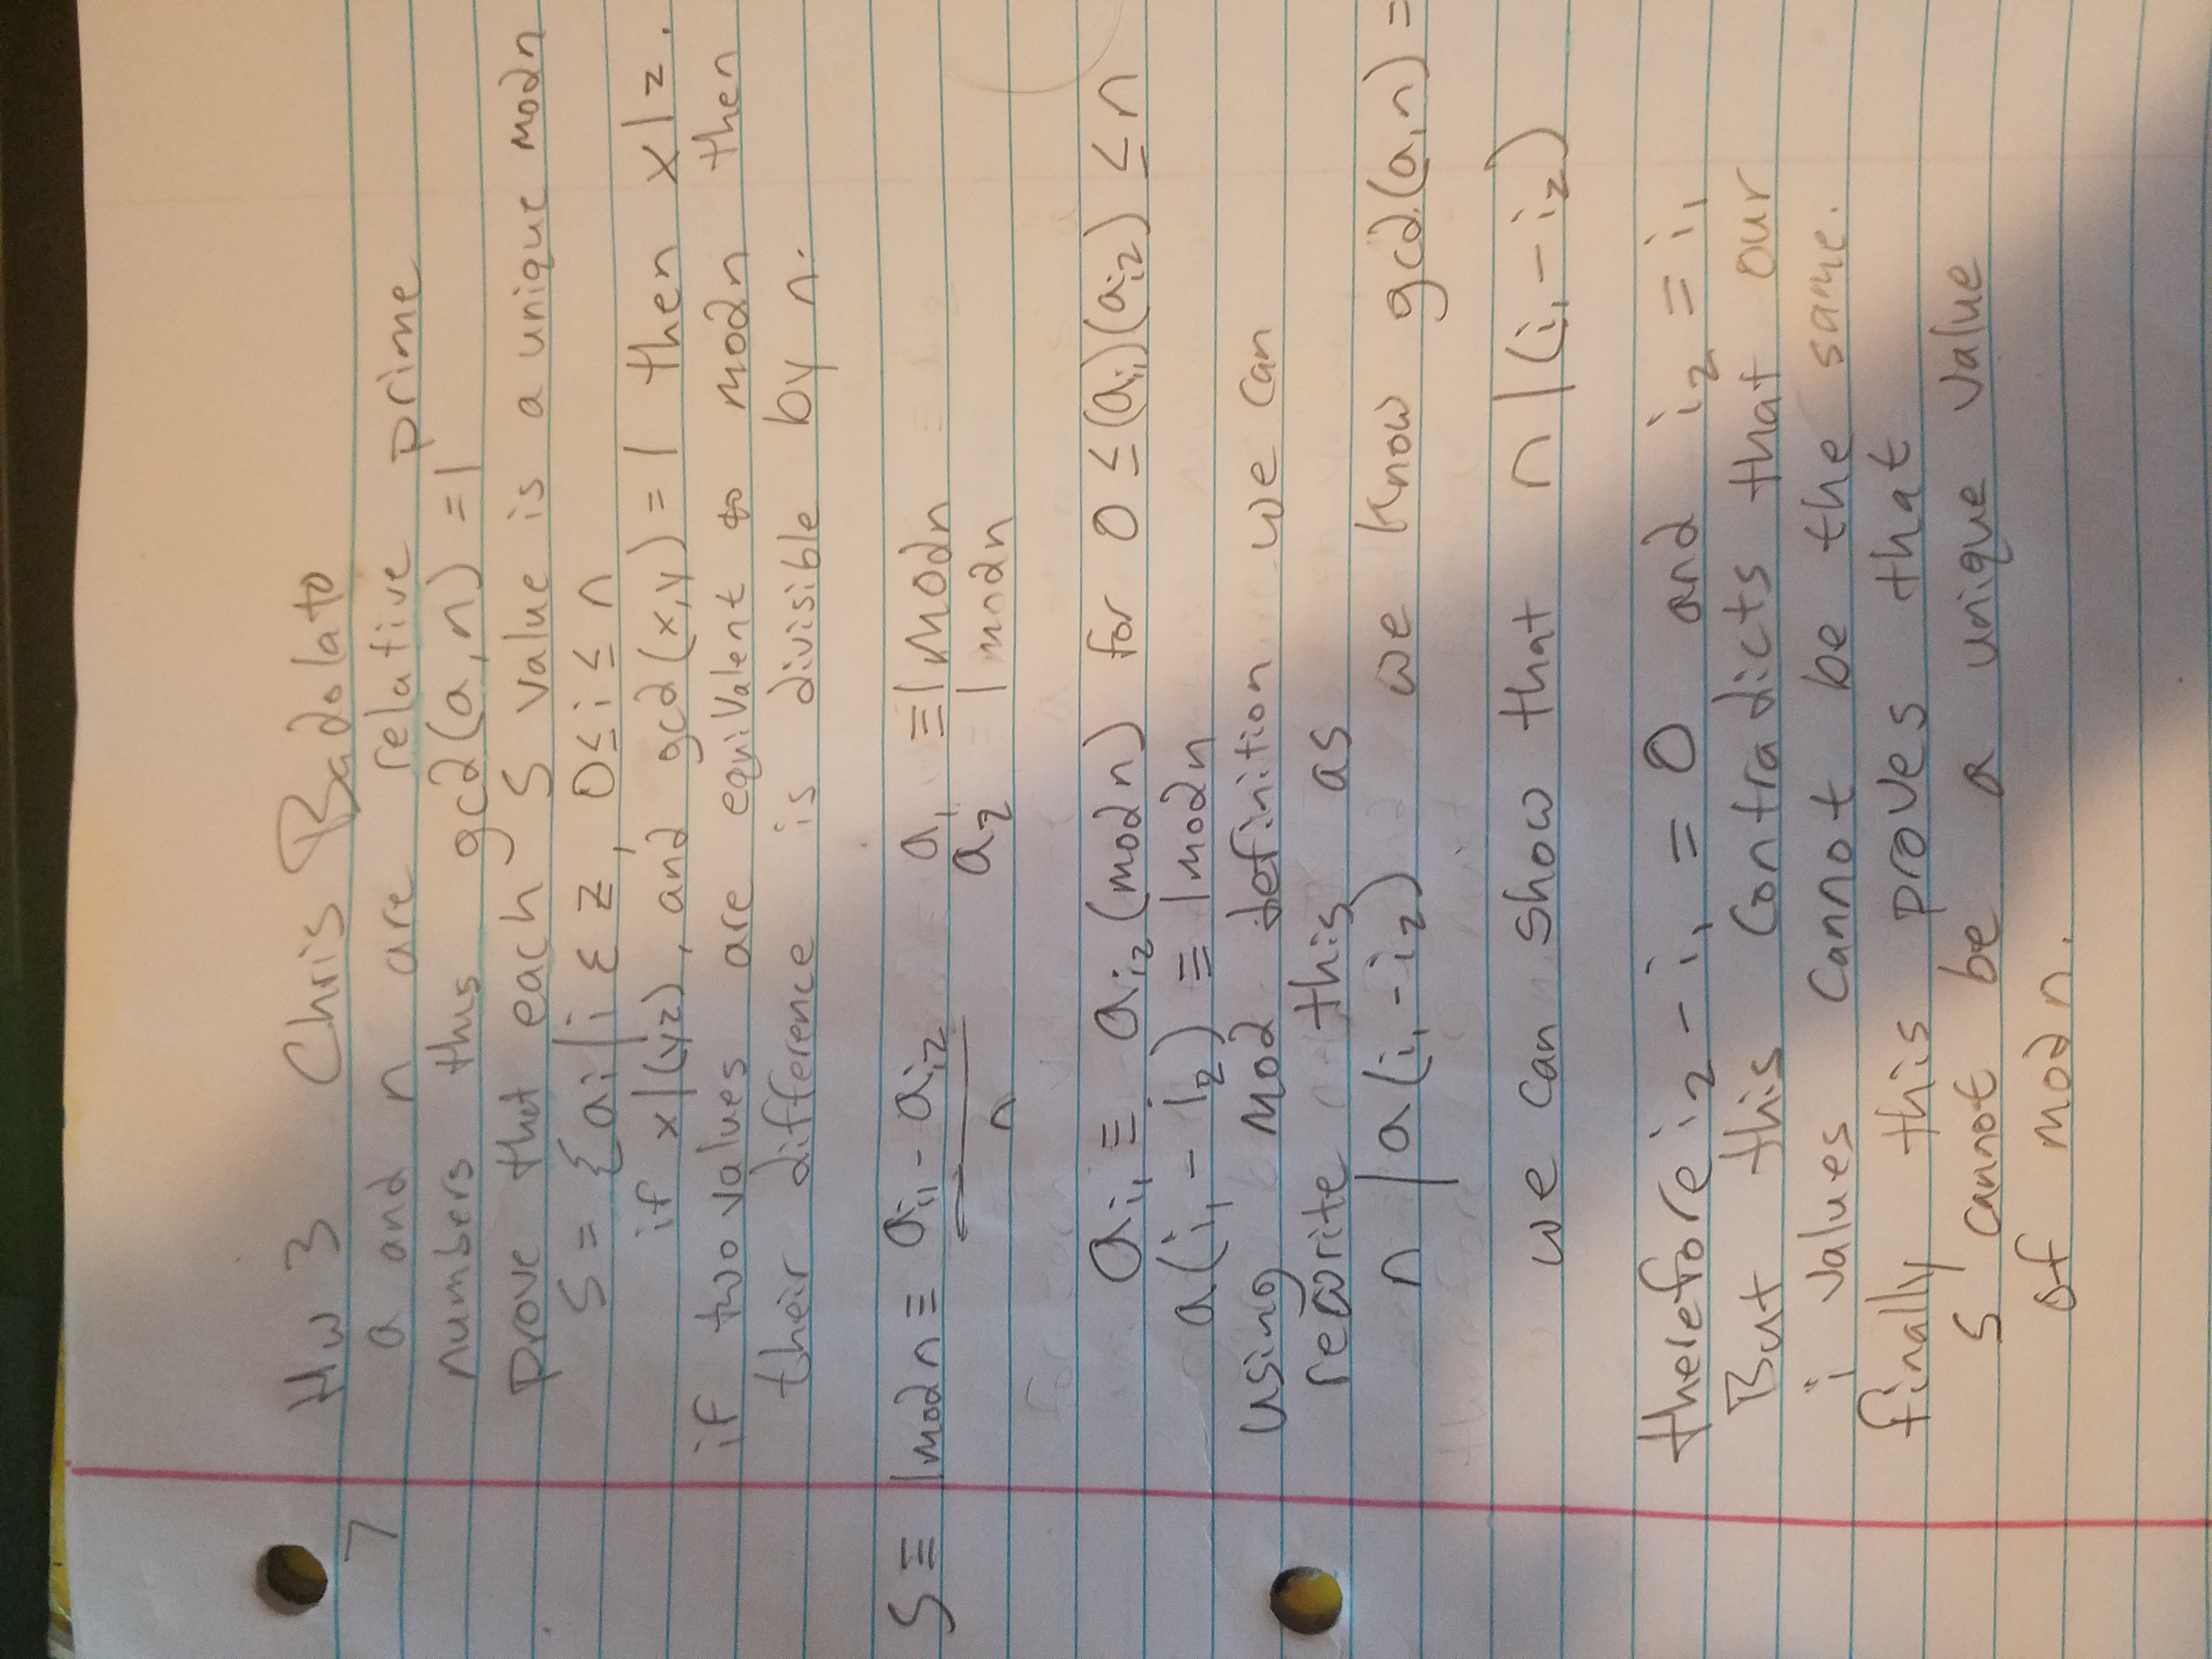 Hw 3 Chris Badolato
7 a and n are relative prime
numbers thus gcd(a,n) = 1
prove that each S value is a unique modn
S = {ai | i ε Z, 0 ≤ i ≤ n
if x|(yz), and gcd(x,y) = 1 then x|z.
if two values are equivalent to modn then
their difference is divisible by n.
S ≡ 1modn ≡ (ai₁ - ai₂)/n a₁ ≡ 1modn
a₂ ≡ 1modn
ai₁ ≡ ai₂ (modn) for 0 ≤ (ai₁)(ai₂) ≤ n
a(i₁ - i₂) ≡ 1modn
using mod definition we can
rewrite this as
n | a(i₁ - i₂) we know gcd(a,n) =
we can show that n | (i₁ - i₂)
therefore i₂ - i₁ = 0 and i₂ = i₁
But this contradicts that our
i values cannot be the same.
finally this proves that
S cannot be a unique value
of modn.